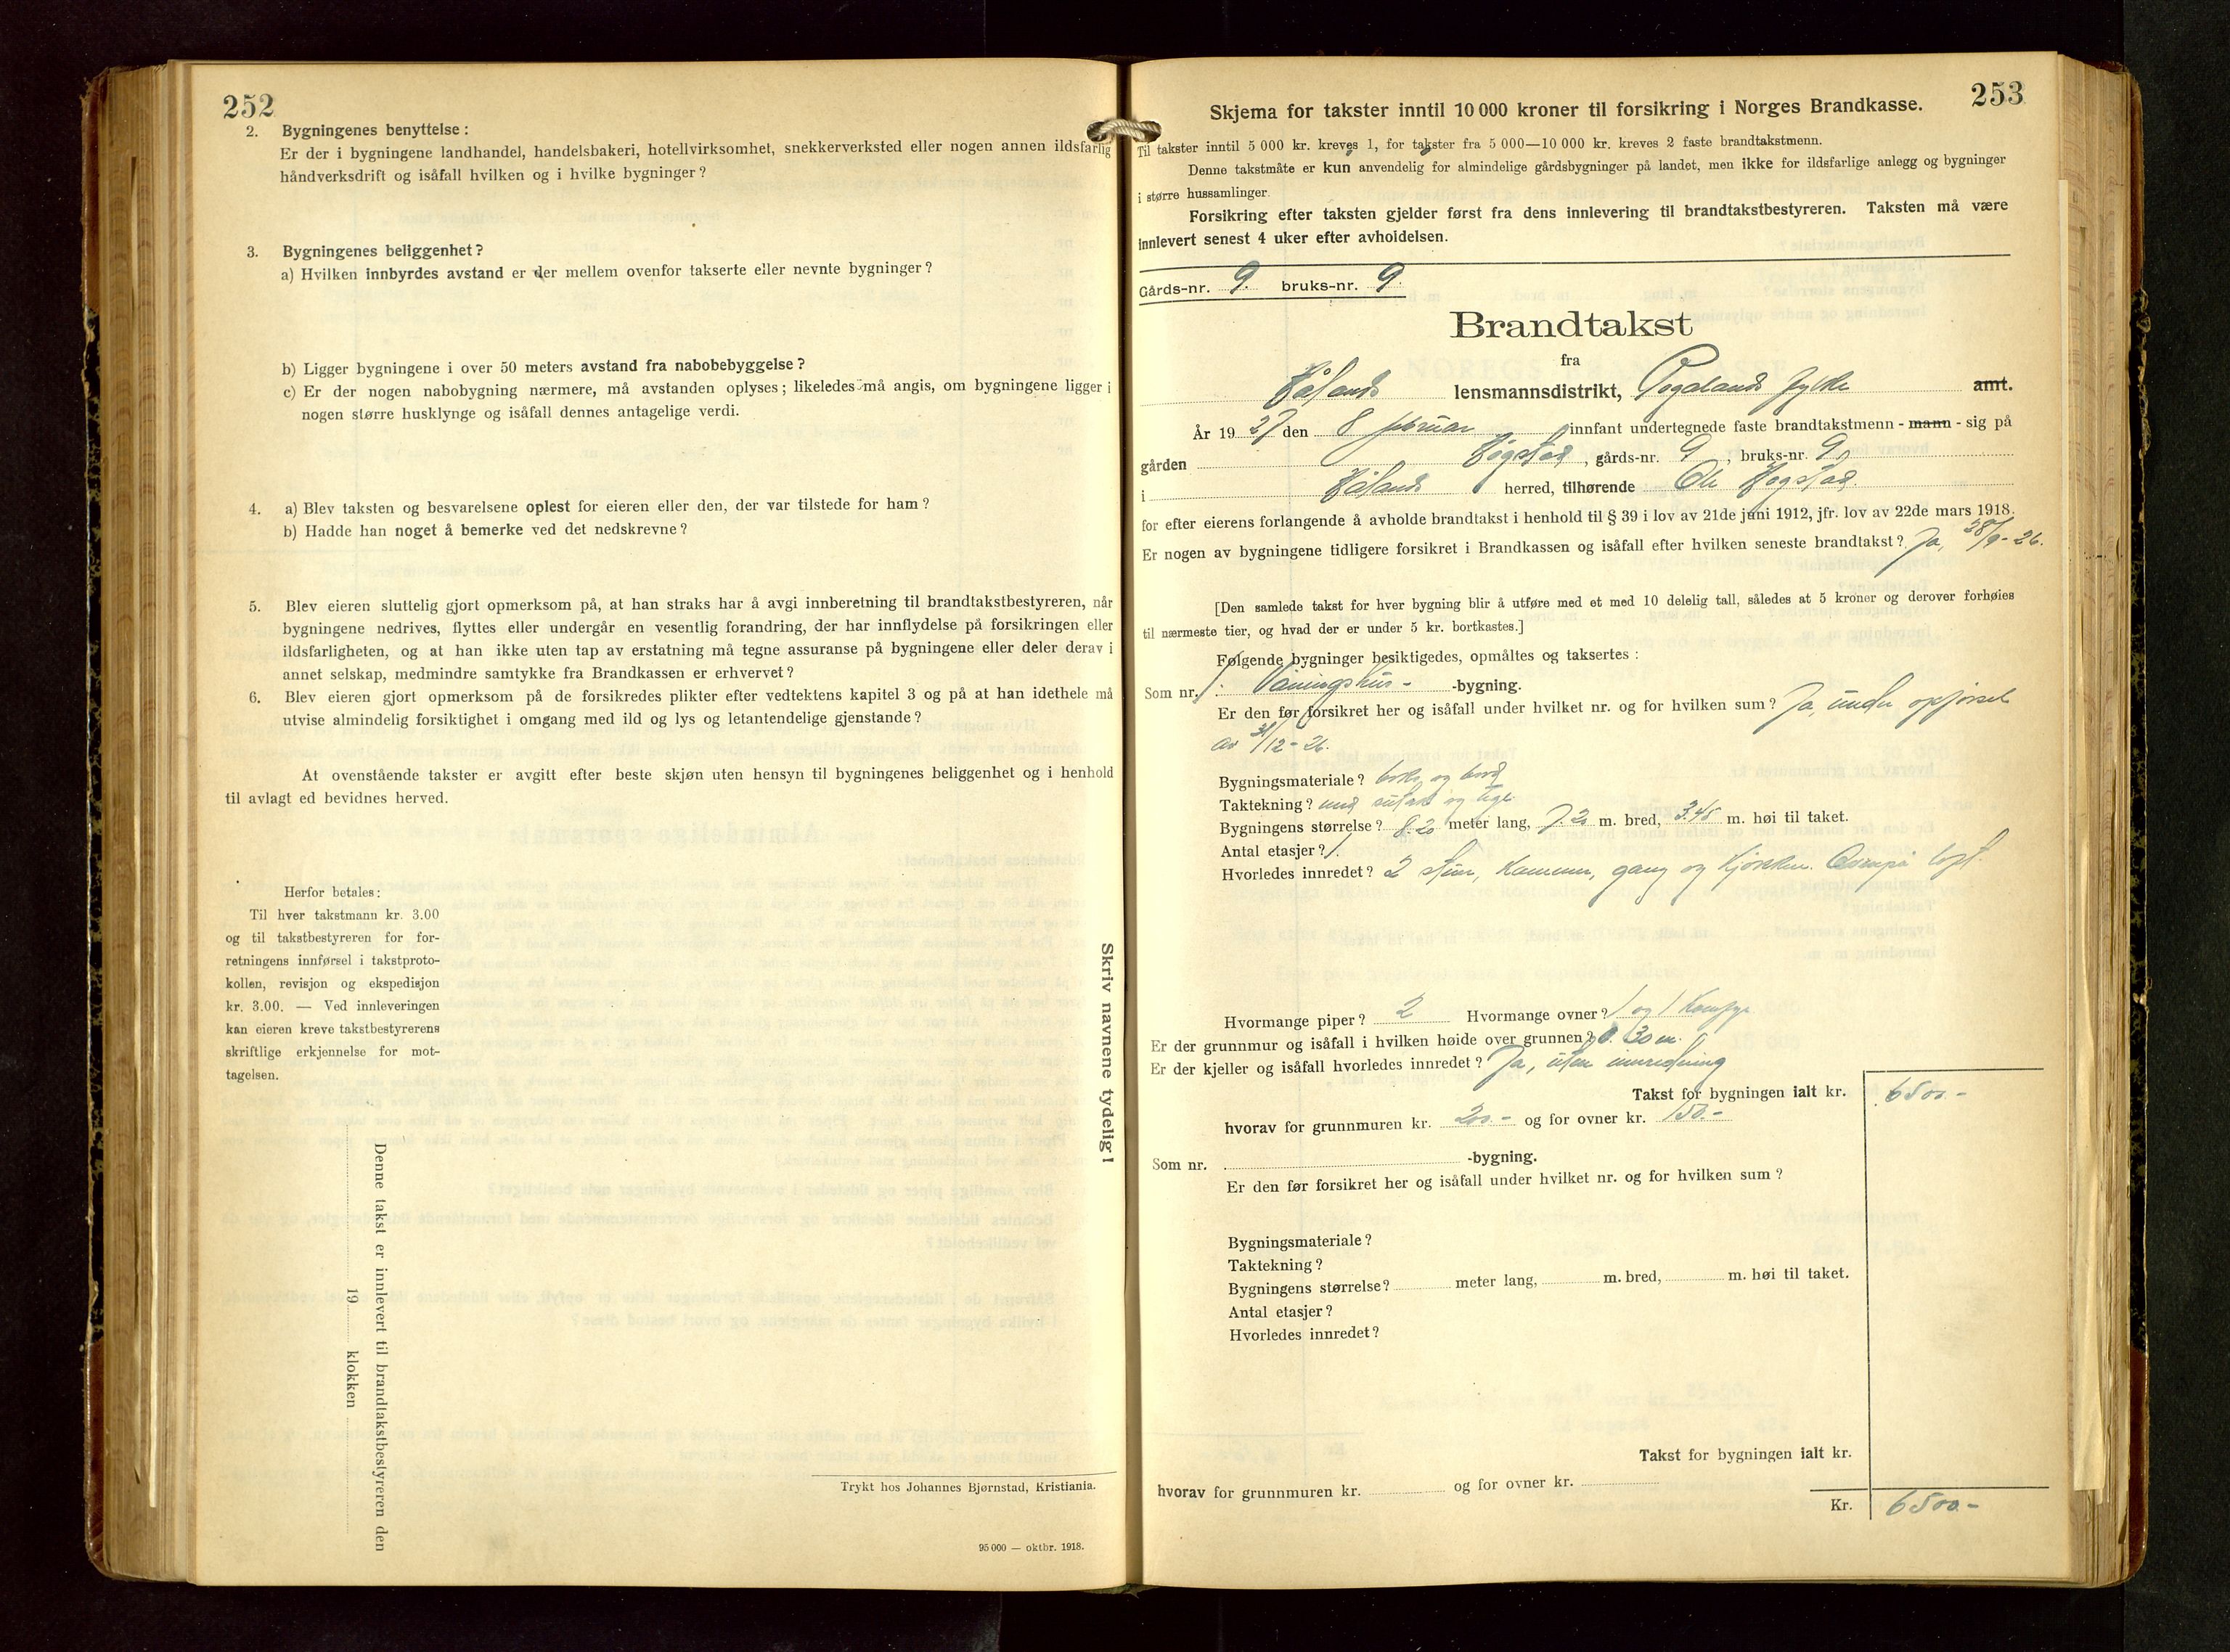 252
2. Bygningenes benyttelse :
Er der i bygningene landhandel, handelsbakeri, hotellvirksomhet, snekkerverksted eller nogen annen ildsfarlig
håndverksdrift og isåfall hvilken og i hvilke bygninger ?
3. Bygningenes beliggenhet ?
a) Hvilken innbyrdes avstand er der mellem ovenfor takserte eller nevnte bygninger ?
b) Ligger bygningene i over 50 meters avstand fra nabobebyggelse ?
c) Er der nogen nabobygning nærmere, må avstanden oplyses ; likeledes må angis, om bygningene ligger i
nogen større husklynge og isåfall dennes antagelige verdi.
4. a) Blev taksten og besvarelsene oplest for eieren eller den, der var tilstede for ham ?
b) Hadde han noget å bemerke ved det nedskrevne ?
5. Blev eieren sluttelig gjort opmerksom på, at han straks har å avgi innberetning til brandtakstbestyreren, når
bygningene nedrives, flyttes eller undergår en vesentlig forandring, der har innflydelse på forsikringen eller
ildsfarligheten, og at han ikke uten tap av erstatning må tegne assuranse på bygningene eller deler derav i
annet selskap, medmindre samtykke fra Brandkassen er erhvervet ?
6. Blev eieren gjort opmerksom på de forsikredes plikter efter vedtektens kapitel 3 og på at han idethele må
utvise almindelig forsiktighet i omgang med ild og lys og letantendelige gjenstande ?
At ovenstående takster er avgitt efter beste skjøn uten hensyn til bygningenes beliggenhet og i henhold
til avlagt ed bevidnes herved.
Herfor betales :
Til hver takstmann kr. 3.00
og til takstbestyreren for for-
retningens innførsel i takstproto-
kollen, revisjon og ekspedisjon
kr. 3.00. — Ved innleveringen
kan eieren kreve takstbestyrerens
skriftlige erkjennelse for mot-
tagelsen.
Skriv navnene tydelig !
Denne takst er innlevert til brandtakstbestyreren den
19 klokken
Trykt hos Johannes Bjørnstad, Kristiania.
95 000 — oktbr. 1918.
253
Skjema for takster inntil 10 000 kroner til forsikring i Norges Brandkasse.
Til takster inntil 5 000 kr. kreves 1, for takster fra 5 000—10 000 kr. kreves 2 faste brandtakstmenn.
Denne takstmåte er kun anvendelig for almindelige gårdsbygninger på landet, men ikke for ildsfarlige anlegg og bygninger
i større hussamlinger.
Forsikring efter taksten gjelder først fra dens innlevering til brandtakstbestyreren. Taksten må være
innlevert senest 4 uker efter avholdelsen.
Gårds-nr. 9. bruks-nr. 9.
Brandtakst
fra
Håland lensmannsdistrikt, Rogaland fylke amt.
År 19 27 den 8 februar innfant undertegnede faste brandtakstmenn - mann - sig på
gården Høgstad, gårds-nr. 9, bruks-nr. 9,
i Håland herred, tilhørende Ole Høgstad.
for efter eierens forlangende å avholde brandtakst i henhold til § 39 i lov av 21de juni 1912, jfr. lov av 22de mars 1918.
Er nogen av bygningene tidligere forsikret i Brandkassen og isåfall efter hvilken seneste brandtakst ? Ja, 28/9-26.
[Den samlede takst for hver bygning blir å utføre med et med 10 delelig tall, således at 5 kroner og derover forhøies
til nærmeste tier, og hvad der er under 5 kr. bortkastes.]
Følgende bygninger besiktigedes, opmåltes og taksertes :
Som nr. 1. Våningshus- -bygning.
Er den før forsikret her og isåfall under hvilket nr. og for hvilken sum ? Ja, under opførsel
av 31/12-26.
Bygningsmateriale ? og bord
Taktekning ? med og tegl
Bygningens størrelse ? 8.20 meter lang, 7.20 m. bred, 3.45 m. høi til taket.
Antal etasjer ? 1.
Hvorledes innredet ? 2 stuer, kammer, gang og kjøkken. Ovenpå loft.
Hvormange piper ? 2 Hvormange ovner ? 1 og 1 Komfyr
Er der grunnmur og isåfall i hvilken høide over grunnen ? 0.30 m.
Er der kjeller og isåfall hvorledes innredet ? Ja, uten innredning
Takst for bygningen ialt kr. 6500.-
hvorav for grunnmuren kr. 200.- og for ovner kr. 150.-
Som nr. -bygning.
Er den før forsikret her og isåfall under hvilket nr. og for hvilken sum ?
Bygningsmateriale ?
Taktekning ?
Bygningens størrelse ? meter lang, m. bred, m. høi til taket.
Antal etasjer ?
Hvorledes innredet ?
Takst for bygningen ialt kr.
hvorav for grunnmuren kr. og for ovner kr.
Kr. 6500.-